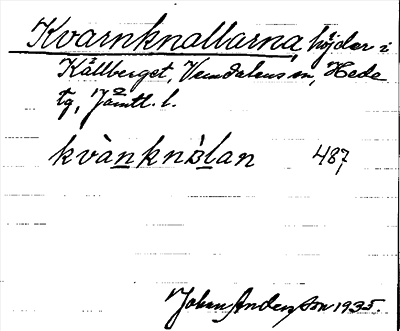 Kvarnknallarna, höjder i
Kållberget, Vemdalens sn, Hede
tg, Jämtl. l.
kvànknɔ̀lan 487
Johan Anderson 1935.